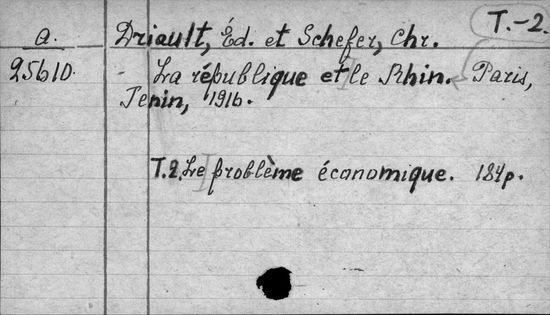 T.-2.
a. Driault, Éd. et Schefer, Chr.
25610. - La république et le Rhin. Paris,
Tenin, 1916.
T.2. Le problème économique. 184p.